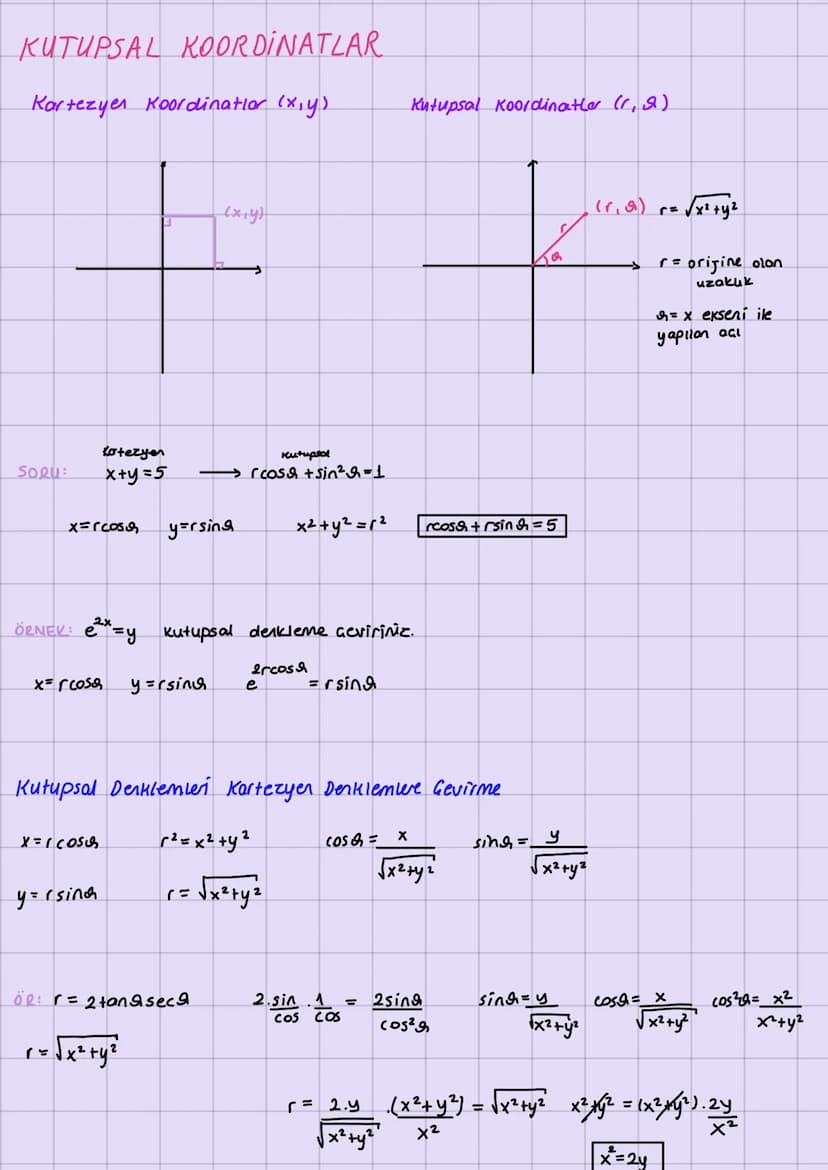 KUTUPSAL KOORDİNATLAR
Kartezyen Koordinatlar (x,y)
Kutupsal Koordinatlar (r, θ)
(x,y)
(r, θ)
r
θ
r = √(x²+y²)
r = orijine olan
uzaklık
θ = x ekseni ile
yapılan açı
Kartezyen
Kutupsal
SORU: x+y=5 ⟶ rcosθ + sin²θ = 1
x=rcosθ y=rsinθ x²+y²=r² rcosθ + rsinθ = 5
ÖRNEK: e^(2x) = y kutupsal denkleme çeviriniz.
x=rcosθ y=rsinθ e^(2rcosθ) = rsinθ
Kutupsal Denklemleri Kartezyen Denklemlere Çevirme
x=rcosθ r²=x²+y² cosθ = x/√(x²+y²) sinθ = y/√(x²+y²)
y=rsinθ r=√(x²+y²)
ÖR: r=2tanθsecθ 2.sin/cos . 1/cos = 2sinθ/cos²θ sinθ = y/√(x²+y²) cosθ = x/√(x²+y²) cos²θ = x²/(x²+y²)
r=√(x²+y²)
r = 2.y/√(x²+y²) . (x²+y²)/x² = √(x²+y²) x²+y² = (x²+y²).2y/x²
x²=2y